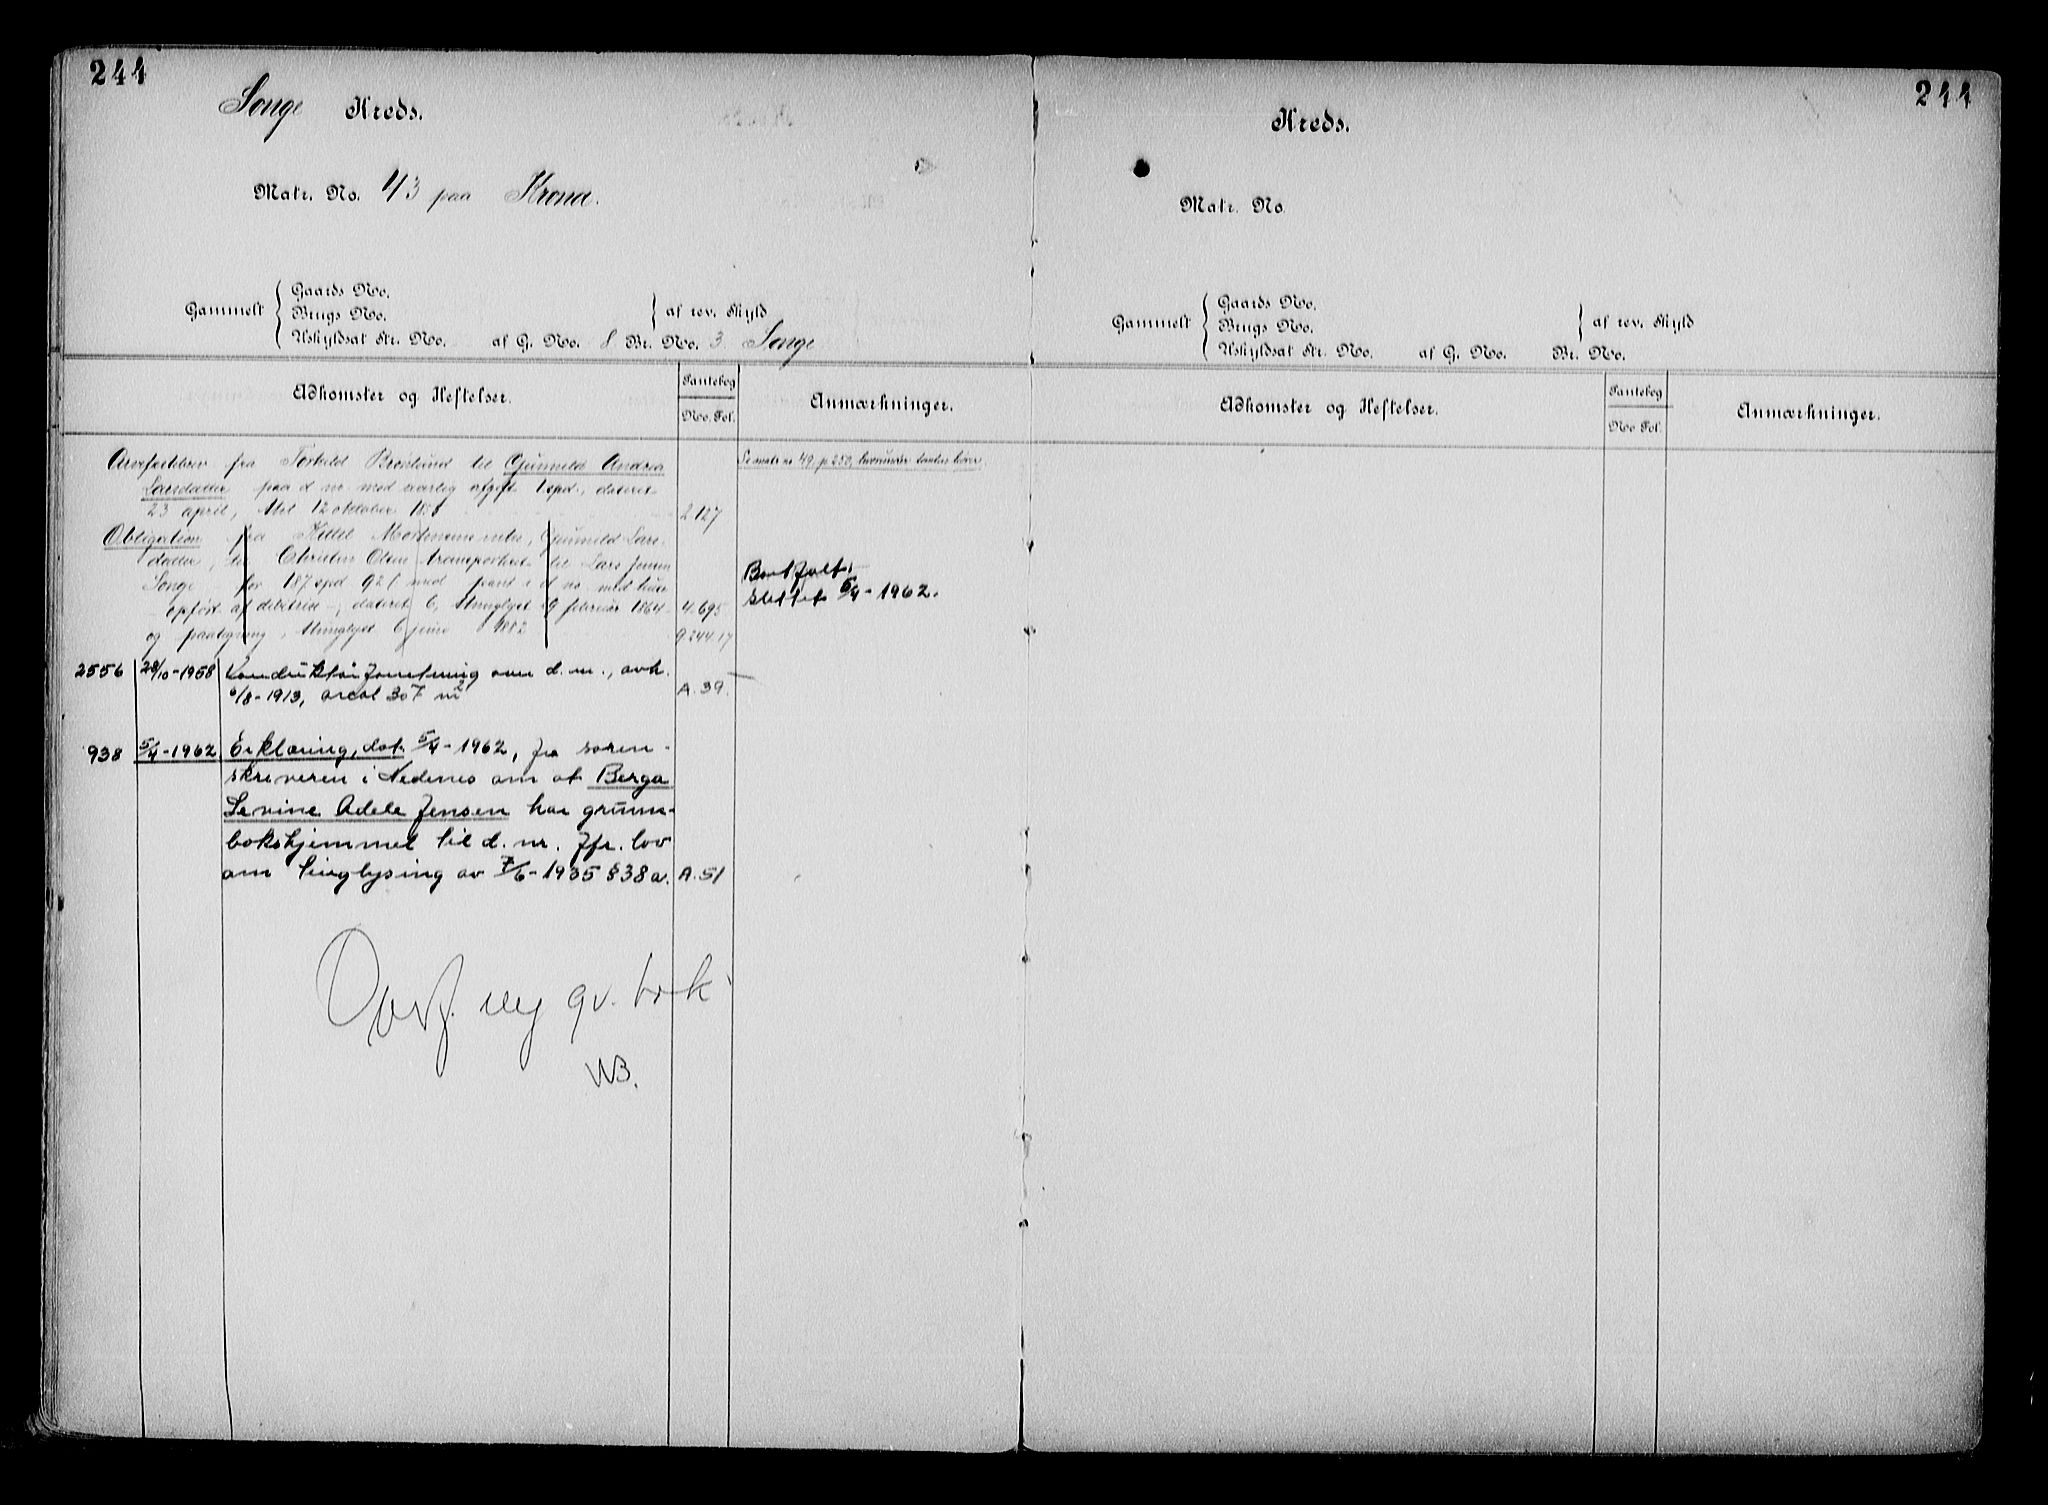 244
Songe Kreds.
Matr. No. 43 paa Krona.
Gammelt
Gaards No.
Brugs No.
Uskyldsat Str. No. af G. No. 8 Br. No. 3 Songe
af rev. Skyld
Adkomster og Heftelser.
Pantebog
No. Fol.
Anmærkninger.
fra Torkild til Gunnild Andrea
Larsdatter paa d. nr. med aarlig afgift 1 spd., dateret
23 april, thl. 12 oktober
2 127
Se matr. nr. 49 p 252, hvorunder
Obligation fra Kittel Gunnild Lars-
datter, til Christen Olsen transporteret til Lars Jensen
Songe for 187 spd 92 med pant i d no med huse
opført af debitrice, dateret 6, thinglyst 9 februar 1864
4.695
og paategning, thinglyst 6 juni 1882
9.244.17
Bortfalt,
slettet 5/4-1962.
2556 28/10-1958 Konduktørforretning over d. nr., avh.
6/8-1913, areal 307 m2
A. 39.
938 5/4-1962 Erklæring, dat. 5/4-1962, fra soren-
skriveren i Nedenes om at Berga
Sevine Adele Jensen har grunn-
bokshjemmel til d. nr. Jfr. lov
om tinglysing av 7/6-1935 § 38 a. A. 51
Overf. ny gr. bok
244
Kreds.
Matr. No.
Gammelt
Gaards No.
Brugs No.
Uskyldsat Str. No. af G. No. Br. No.
af rev. Skyld
Adkomster og Heftelser.
Pantebog
No Fol.
Anmærkninger.